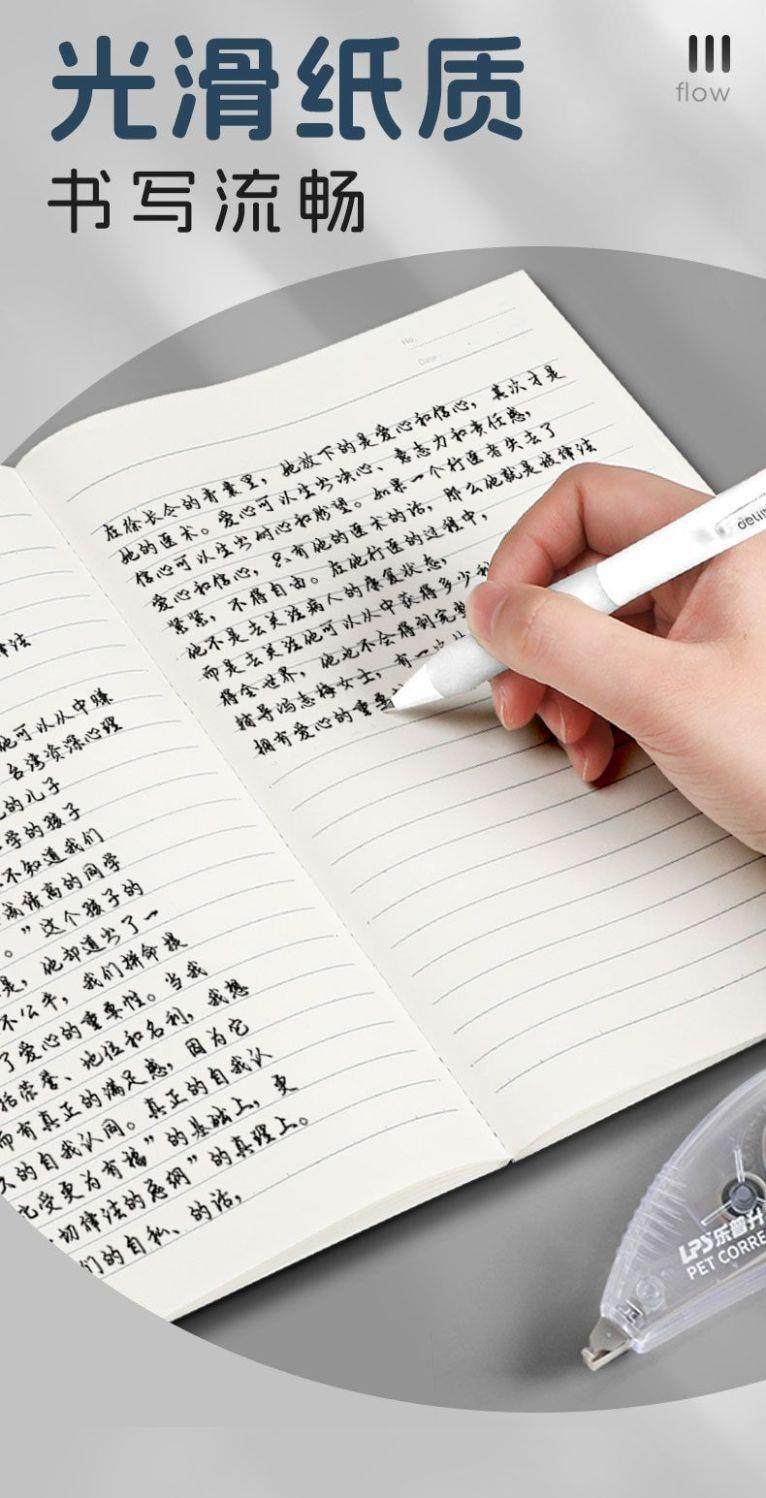 光滑纸质
flow
书写流畅
No.
Date
在徐长今的青囊里，她放下的是爱心和信心，其次才是
她的医术。爱心可以生出决心、意志力和责任感，
信心可以生出耐心和盼望。如果一个行医者失去了
爱心和信心，只有他的医术的话，那么他就是被律法
紧紧，不得自由。在他行医的过程中，
他不是去关注病人的康复状态，
而是去关注他可以从中获得多少
得全世界，他也不会得到完整
辅导冯志梅女士，有一次
拥有爱心的重要
律法
他可以从中赚
台湾资深心理
的儿子
学的孩子
不知道我们
成绩高的同学
。”这个孩子的
是，他却道出了一
不公平，我们拼命提
了爱心的重要性。当我
括荣誉、地位和名利，我想
而有真正的满足感，因为它
久的自我认同。真正的自我认
比受更为有福”的基础上，更
一切律法的总纲”的真理上。
们的自私、的话，
deli
LPS乐普升
PET CORRE